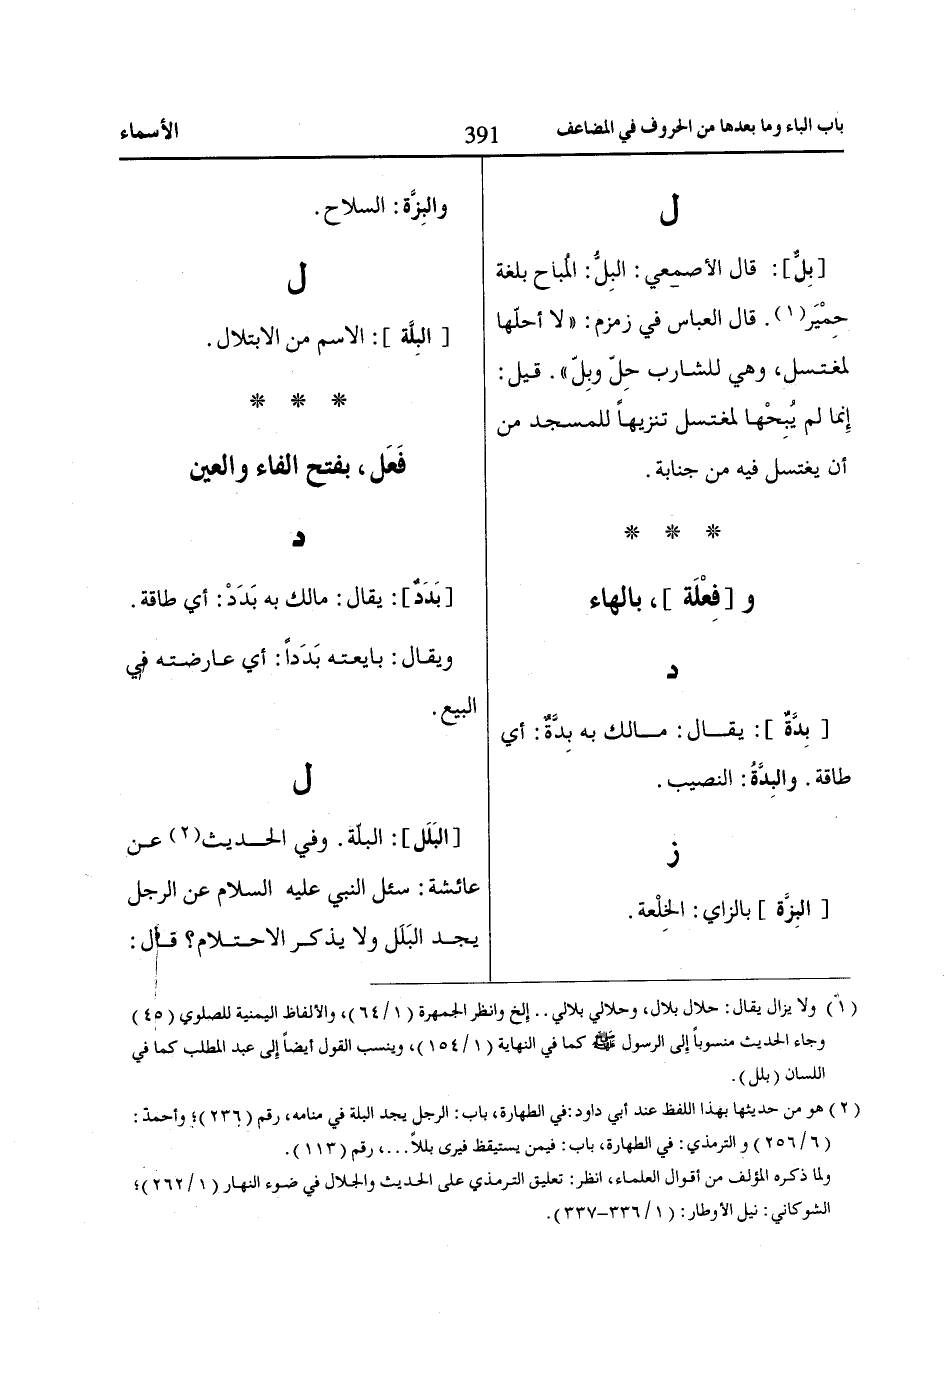 باب الباء وما بعدها من الحروف في المضاعف 391 الأسماء
ل
[بِلٌّ]: قال الأصمعي: البِلُّ: المُباح بلغة
حِمْيَر(١). قال العباس في زمزم: «لا أحلّها
لمغتسل، وهي للشارب حلّ وبلّ». قيل:
إنما لم يُبِحْها لمغتسل تنزيهاً للمسجد من
أن يغتسل فيه من جنابة.
* * *
و [فِعْلَة]، بالهاء
د
[بِدَّةٌ]: يقال: مالك به بِدَّةٌ: أي
طاقة. والبِدَّةُ: النصيب.
ز
[البِزَّة] بالزاي: الخِلْعة.
والبِزَّة: السلاح.
ل
[البِلَّة]: الاسم من الابتلال.
* * *
فَعَل، بفتح الفاء والعين
د
[بَدَدٌ]: يقال: مالك به بَدَدْ: أي طاقة.
ويقال: بايعته بَدَداً: أي عارضته في
البيع.
ل
[البَلَل]: البلّة. وفي الحديث(٢) عن
عائشة: سئل النبي عليه السلام عن الرجل
يجد البَلَل ولا يذكر الاحتلام؟ قال:
(١) ولا يزال يقال: حلال بلال، وحلالي بلالي.. إلخ وانظر الجمهرة (١/٦٤)، والألفاظ اليمنية للصلوي (٤٥)
وجاء الحديث منسوباً إلى الرسول ﷺ كما في النهاية (١/١٥٤)، وينسب القول أيضاً إلى عبد المطلب كما في
اللسان (بلل).
(٢) هو من حديثها بهذا اللفظ عند أبي داود:في الطهارة، باب: الرجل يجد البلة في منامه، رقم (٢٣٦)؛ وأحمد:
(٦/٢٥٦) و الترمذي: في الطهارة، باب: فيمن يستيقظ فيرى بللاً...، رقم (١١٣).
ولما ذكره المؤلف من أقوال العلماء، انظر: تعليق الترمذي على الحديث والجلال في ضوء النهار (١/٢٦٢)؛
الشوكاني: نيل الأوطار: (١/٣٣٦-٣٣٧).